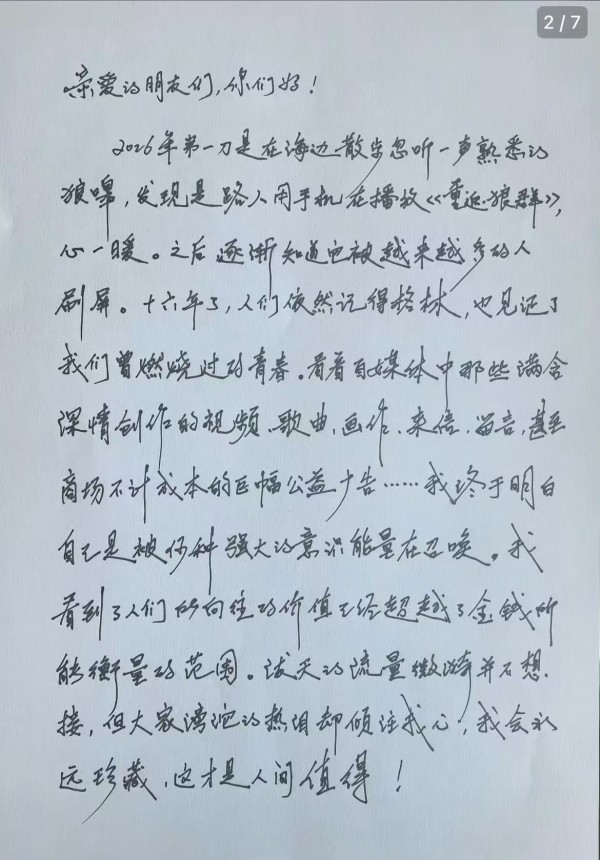 2/7
亲爱的朋友们，你们好！
2026年第一刀是在海边散步忽听一声熟悉的
狼嗥，发现是路人用手机在播放《重返·狼群》，
心一暖。之后逐渐知道它被越来越多的人
刷屏。十六年了，人们依然记得格林，也见证了
我们曾燃烧过的青春。看着自媒体中那些满含
深情创作的视频、歌曲、画作、来信、留言，甚至
商场不计成本的巨幅公益广告……我终于明白
自己是被何种强大的意识能量在召唤。我
看到了人们所向往的价值已经超越了金钱所
能衡量的范围。泼天的流量微漪并不想
接，但大家滂沱的热泪却倾注我心，我会永
远珍藏，这才是人间值得！